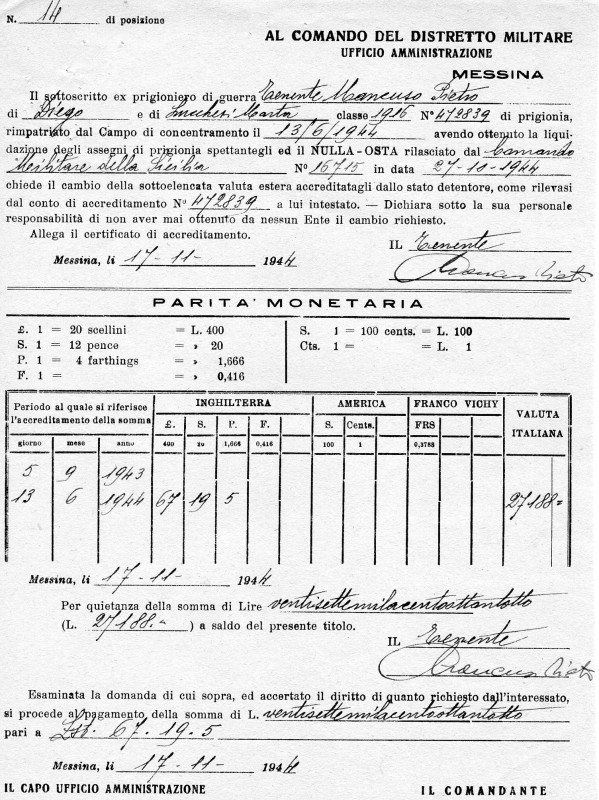 N. 14 di posizione
AL COMANDO DEL DISTRETTO MILITARE
UFFICIO AMMINISTRAZIONE
MESSINA
Il sottoscritto ex prigioniero di guerra Tenente Mancuso Pietro
di Diego e di Lucchesi Marta classe 1916 N° 472839 di prigionia,
rimpatriato dal Campo di concentramento il 13/6/1944 avendo ottenuto la liqui-
dazione degli assegni di prigionia spettantegli ed il NULLA-OSTA rilasciato dal Comando
Militare della Sicilia N° 16715 in data 27-10-1944
chiede il cambio della sottoelencata valuta estera accreditatagli dallo stato detentore, come rilevasi
dal conto di accreditamento N° 472839 a lui intestato. — Dichiara sotto la sua personale
responsabilità di non aver mai ottenuto da nessun Ente il cambio richiesto.
Allega il certificato di accreditamento.
IL Tenente
Messina, li 17-11- 1944
Mancuso Pietro
PARITA' MONETARIA
£. 1 = 20 scellini = L. 400 S. 1 = 100 cents. = L. 100
S. 1 = 12 pence = » 20 Cts. 1 = = L. 1
P. 1 = 4 farthings = » 1,666
F. 1 = = » 0,416
Periodo al quale si riferisce l'accreditamento della somma INGHILTERRA AMERICA FRANCO VICHY VALUTA ITALIANA
£. S. P. F. S. Cents. FRS
giorno mese anno 400 20 1,666 0,416 100 1 0,3788
5 9 1943
13 6 1944 67 19 5 27188=
Messina, li 17-11- 1944
Per quietanza della somma di Lire ventisettemilacentottantotto
(L. 27188.=) a saldo del presente titolo.
IL Tenente
Mancuso Pietro
Esaminata la domanda di cui sopra, ed accertato il diritto di quanto richiesto dall'interessato,
si procede al pagamento della somma di L. ventisettemilacentottantotto
pari a Lst. 67. 19. 5
Messina, li 17-11- 1944
IL CAPO UFFICIO AMMINISTRAZIONE IL COMANDANTE